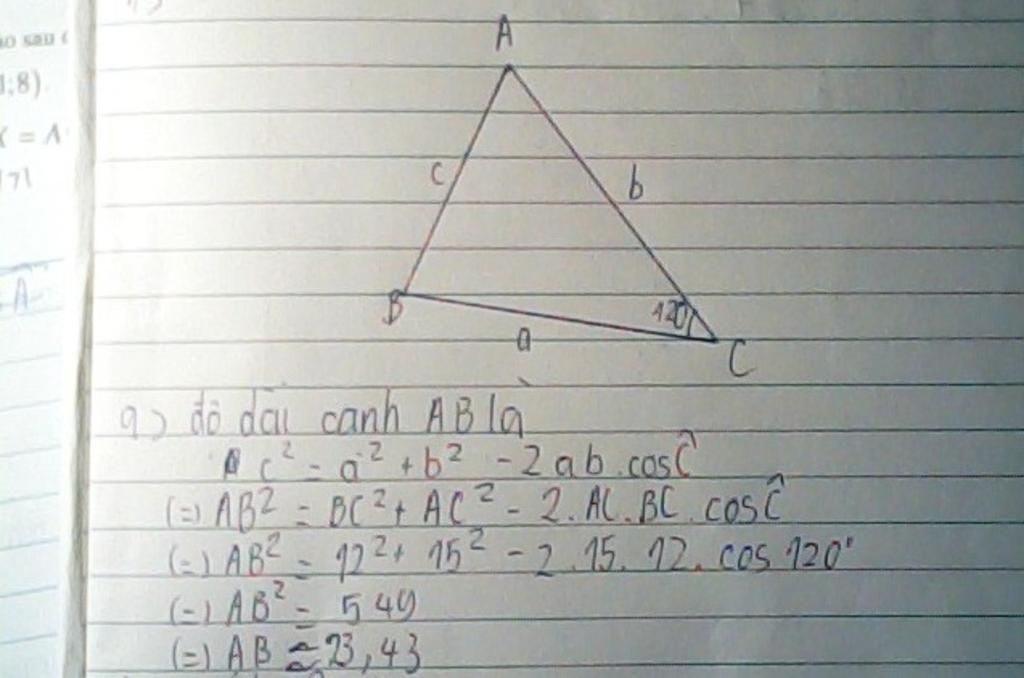 ào sau
1;8).
A
c
b
B
120
a
C
a) độ dài cạnh AB là
c² = a² + b² - 2ab.cosĈ
(=) AB² = BC² + AC² - 2.AC.BC.cosĈ
(=) AB² = 12² + 15² - 2.15.12.cos 120°
(=) AB² = 549
(=) AB ≈ 23,43